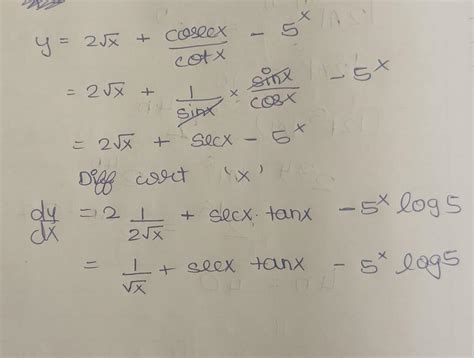 y = 2√x + cosecx/cotx - 5^x
= 2√x + 1/sinx × sinx/cosx - 5^x
= 2√x + secx - 5^x
Diff wrt 'x'
dy/dx = 2 1/2√x + secx. tanx - 5^x log5
= 1/√x + secx tanx - 5^x log5